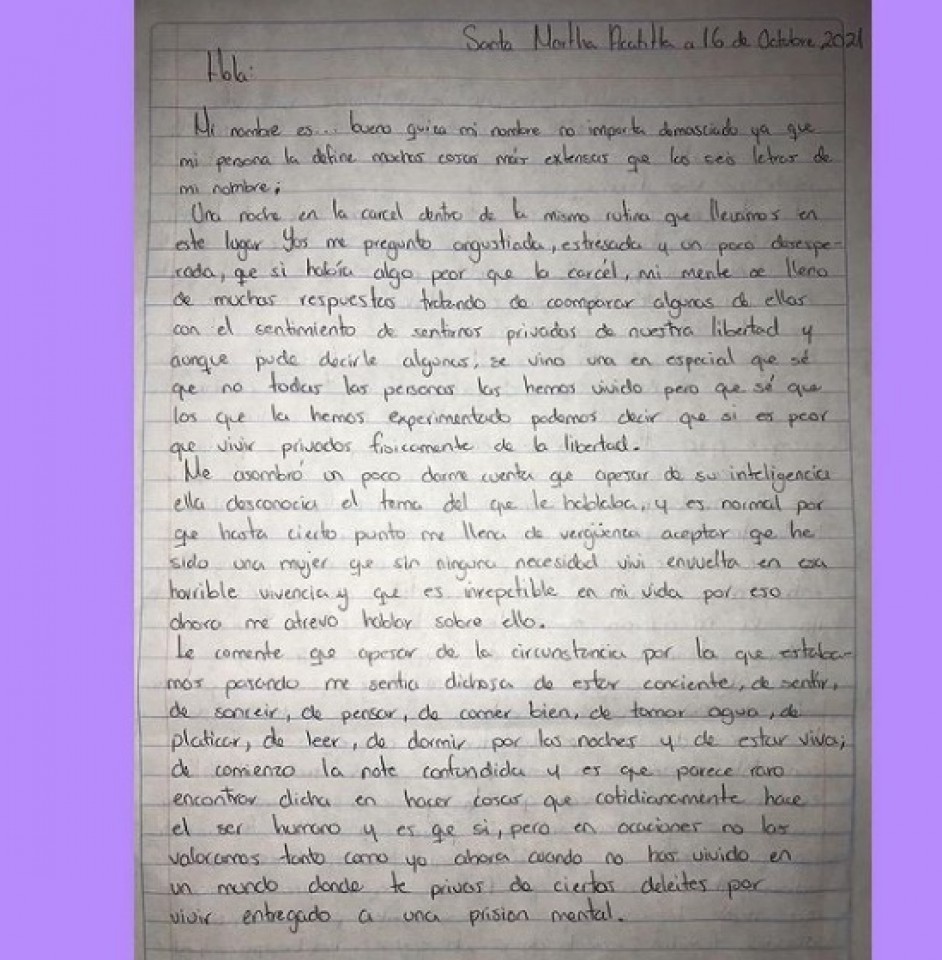 Santa Martha Acatitla a 16 de Octubre 2021
Hola:
Mi nombre es... bueno quiza mi nombre no importa demasciado ya que
mi persona la define muchas cosas más extensas que las seis letras de
mi nombre;
Una noche en la carcel dentro de la misma rutina que llevamos en
este lugar Yos me pregunto angustiada, estresada y un poco desespe-
rada, qe si había algo peor que la carcél, mi mente se lleno
de muchas respuestas tratando de coomparar algunas de ellas
con el sentimiento de sentirnos privados de nuestra libertad y
aunque pude decirle algunas, se vino una en especial que sé
que no todas las personas las hemos vivido pero que sé que
los que la hemos experimentado podemos decir que si es peor
que vivir privados fisicamente de la libertad.
Me asombró un poco darme cuenta que apesar de su inteligencia
ella desconocia el tema del que le hablaba, y es normal por
que hasta cierto punto me llena de vergüenza aceptar qe he
sido una mujer que sin ninguna necesidad vivi envuelta en esa
horrible vivencia y que es irrepetible en mi vida por eso
ahora me atrevo hablar sobre ello.
Le comente que apesar de la circunstancia por la que estaba-
mos pasando me sentia dichosa de estar conciente, de sentir,
de sonreir, de pensar, de comer bien, de tomar agua, de
platicar, de leer, de dormir por las noches y de estar viva;
de comienzo la note confundida y es que parece raro
encontrar dicha en hacer cosas que cotidianamente hace
el ser humano y es qe si, pero en ocaciones no las
valoramos tanto como yo ahora cuando no has vivido en
un mundo donde te privas de ciertos deleites por
vivir entregado a una prision mental.